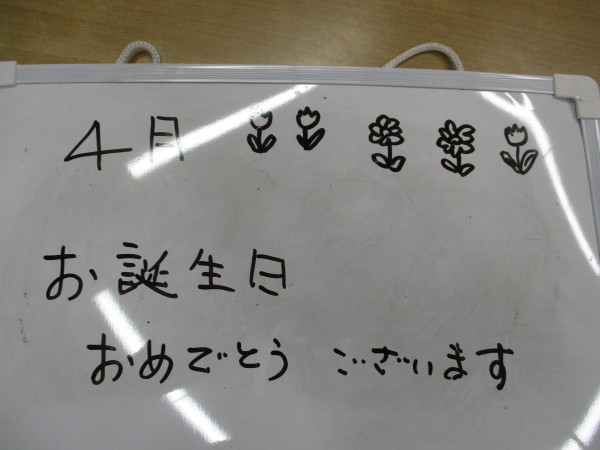 4月
お誕生日
おめでとう ございます